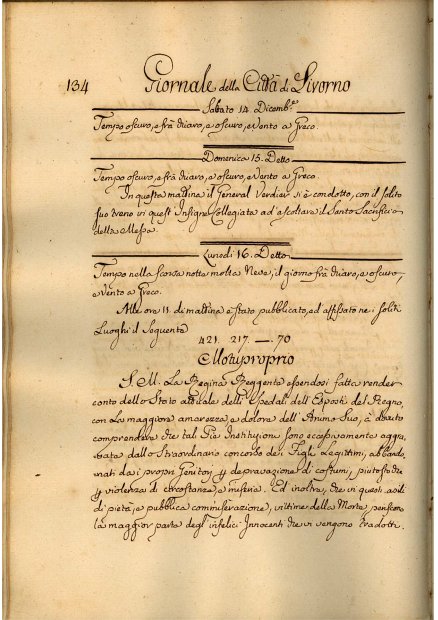 134 Giornale della Città di Livorno
Sabato 14. Dicemb.e
Tempo oscuro, e frà chiaro, e oscuro, e Vento a Greco.
Domenica 15. Detto
Tempo oscuro, e frà chiaro, e oscuro, e Vento a Greco.
In questa mattina il General Verdier si è condotto, con il solito
suo treno in quest' Insigne Collegiata ad' ascoltare il Santo Sacrificio
della Messa.
Lunedì 16. Detto
Tempo nella scorsa notte molta Neve, il giorno frà chiaro, e oscuro,
e Vento a Greco.
Alle ore 11. di mattina è stato pubblicato, ed' affissato ne i soliti
Luoghi il seguente
421. 217. — . 70
Motuproprio
S. M. La Regina Reggente essendosi fatta render
conto dello Stato attuale delli Spedali dell' Esposti del Regno,
con La maggiore amarezza, e dolore dell' Animo Suo, à dovuto
comprendere che tali Pie Instituzioni sono eccessivamente aggra
vate dallo Straordinario concorso dei Figli Legittimi, abbando
nati da i propri Genitori, p depravazione di costumi, piutosto che
p violenza di circostanze, e miseria. Ed inoltre, che in questi asili
di pietà, e pubblica commiserazione, vittime della Morte periscono
la maggior parte degl' infelici Innocenti che vi vengono tradotti.